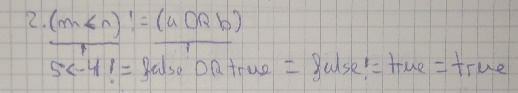 2. (m < n) != (a OR b)
5 < -4 != false OR true = false != true = true